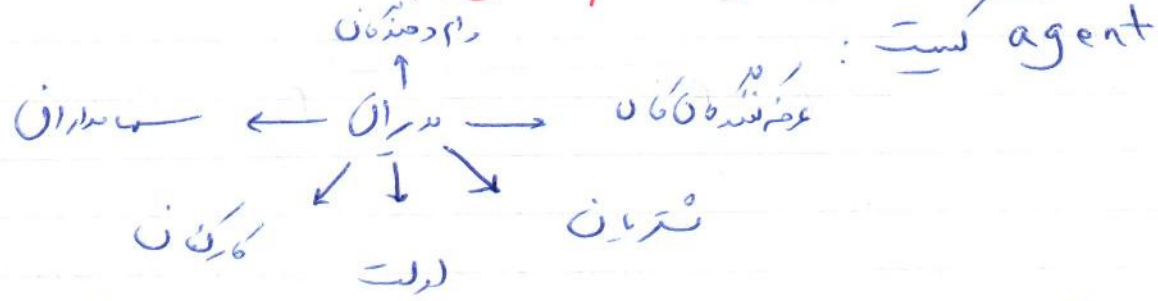 agent کیست :
وام دهندگان
سهامداران ← مدیران → عرضه کنندگان کالا
کارکنان
دولت
مشتریان